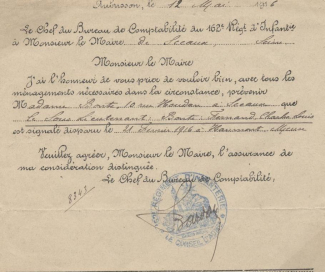 le 12 Mai 1916
Le Chef du Bureau de Comptabilité du 162e Régt d'Infantrie
à Monsieur le Maire de Sceaux, Seine
Monsieur le Maire
J'ai l'honneur de vous prier de vouloir bien, avec tous les
ménagements nécessaires dans la circonstance, prévenir
Madame 10 rue Houdan à Sceaux que
le Sous Lieutenant Fernand, Charles Louis
est signalé disparu le 21 Février 1916 à Haumont, Meuse
Veuillez agréer, Monsieur le Maire, l'assurance de
ma considération distinguée
Le Chef du Bureau de Comptabilité,
8341